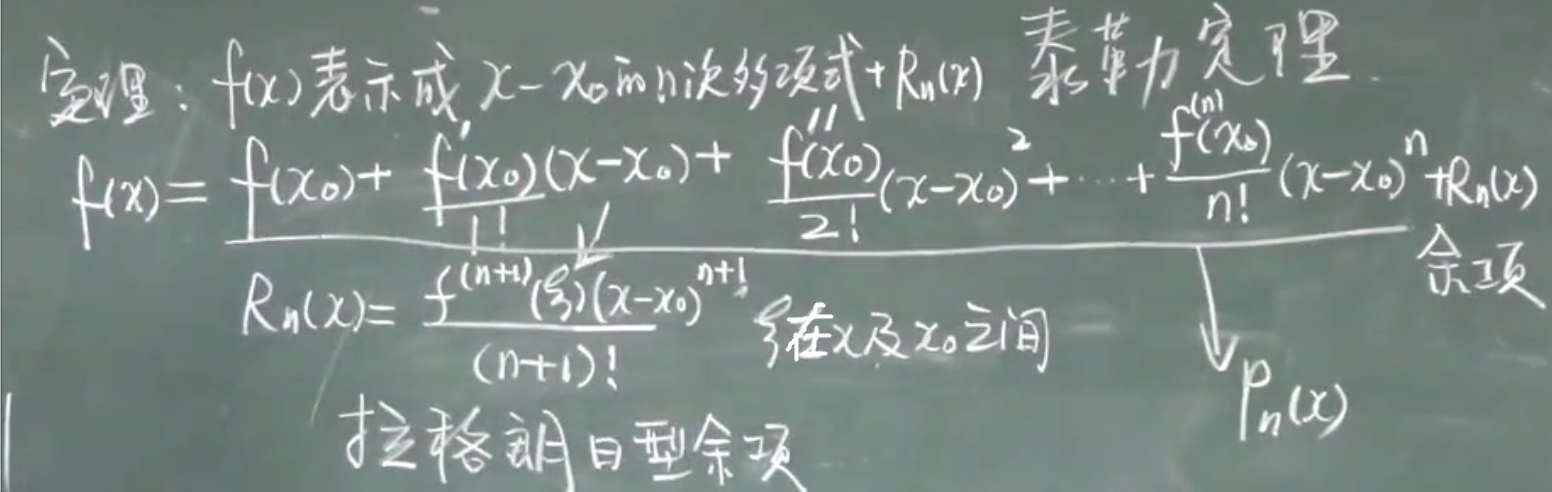 定理：f(x)表示成x-x₀的n次多项式+Rₙ(x) 泰勒定理.
f(x)=f(x₀)+f'(x₀)/1!(x-x₀)+f''(x₀)/2!(x-x₀)²+…+f⁽ⁿ⁾(x₀)/n!(x-x₀)ⁿ+Rₙ(x)
余项
Rₙ(x)=f⁽ⁿ⁺¹⁾(ξ)(x-x₀)ⁿ⁺¹/(n+1)! ξ在x及x₀之间
Pₙ(x)
拉格朗日型余项